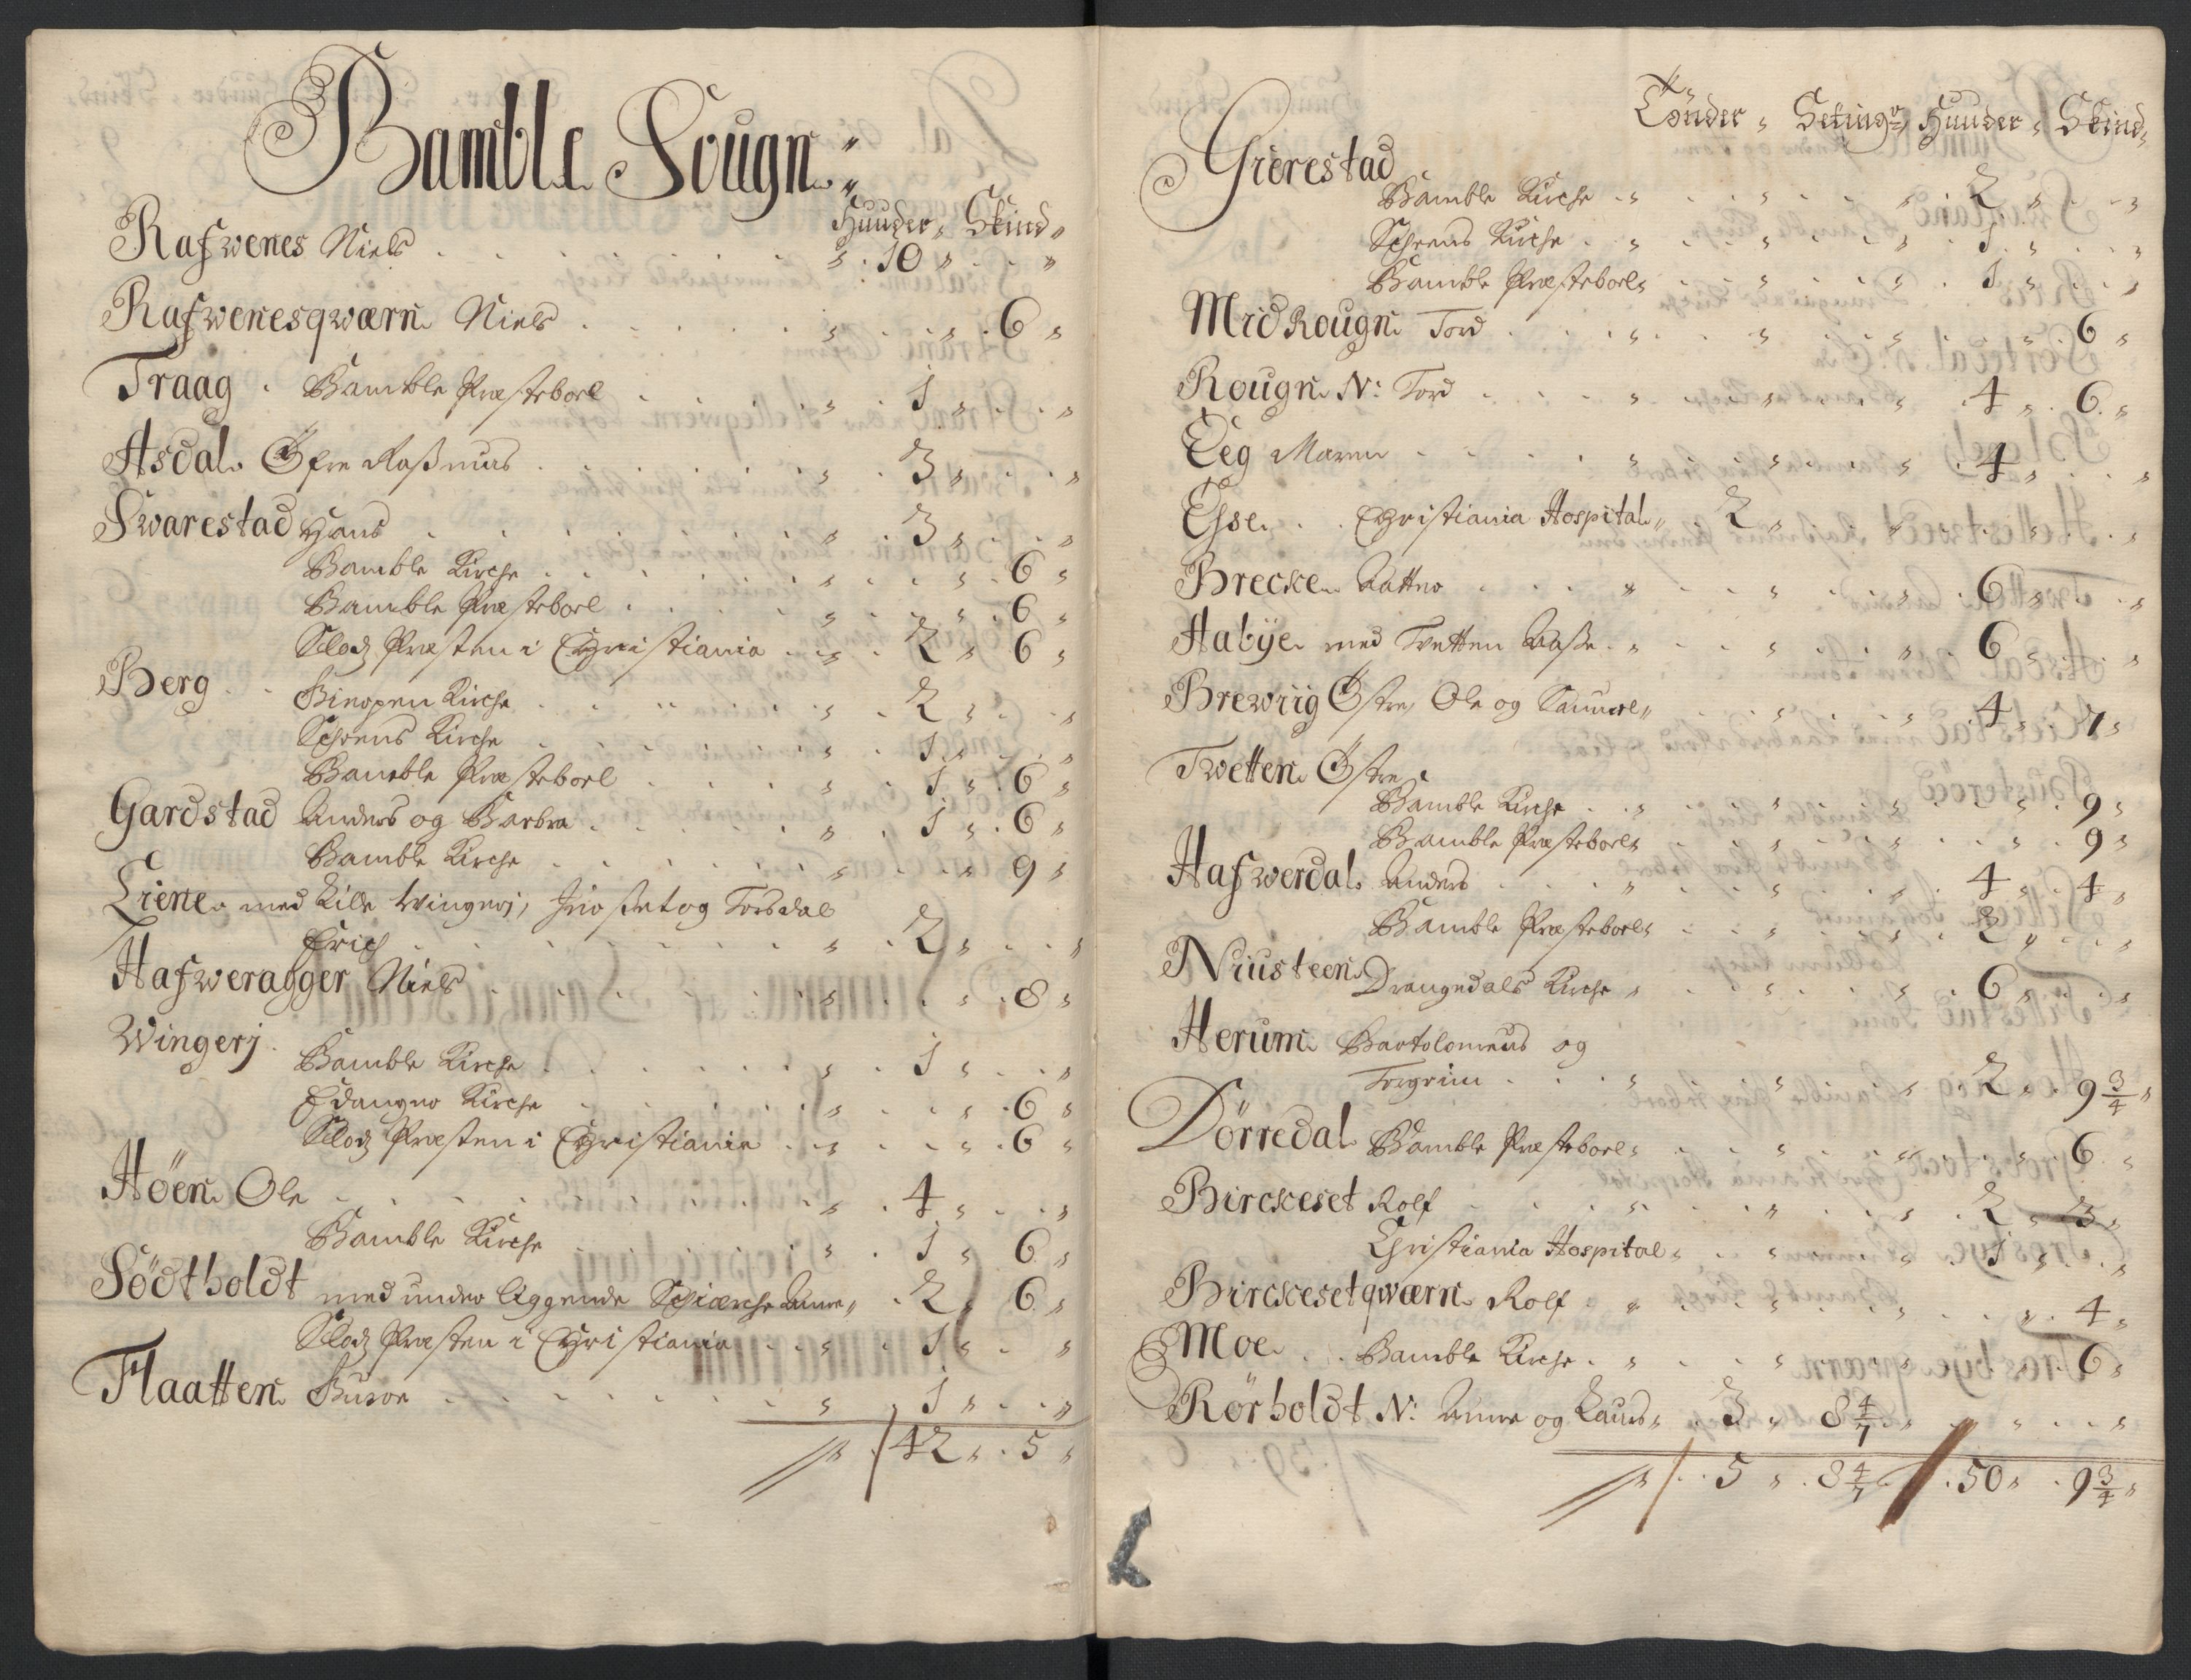 Bamble Sougn
Huuder, Skind,
Rafwenes Niels . . . 10 " . "
Rafwenesqværn Niels . . . 6 "
Traag . Bamble Præsteboel . . . 1 " . "
Asdal Øfre Rasmus . . . 3 " . "
Swarestad Hans . . . 3 " . "
Bamble Kirche . . . 6 "
Bamble Præsteboel . . . 6 "
Slodz Præsten i Christiania . . . 2 " 6 "
Berg . . Kirche . . . 2 " . "
Schiens Kirche . . . 1 " . "
Bamble Præsteboel . . . 1 " 6 "
Gardstad Anders og Barbra . . . 1 " 6 "
Bamble Kirche . . . 9 "
Liene med Lille Wingerj, og Torsdal
Erich . . . 2 " . "
Hafweragger Niels . . . 8 "
Wingerj .
Bamble Kirche . . . 1 " . "
Edanger Kirche . . . 6 "
Slodz Præsten i Christiania . . . 6 "
Höen Ole . . . 4 " . "
Bamble Kirche . . . 1 " 6 "
Södtholdt med under liggende . 2 " 6 "
Slodz Præsten i Christiania . . . 1 " . "
Flaatten . . . 1 " . "
42 " . 5 "
Tønder, Setingr, Huuder, Skind,
Gierestad
Bamble Kirche . . . 2 " . "
Schiens Kirche . . . 1 " . "
Bamble Præsteboel . . . 1 " . "
Midrougn Tord . . . 6 "
Rougn N: Tord . . . 4 " . 6 "
Eeg Maren . . . 4 " . "
. . Christiania Hospital " . 2 " . "
Brecke . . . 6 " . "
Habÿe med Tvetten . . . 6 " . "
Brewiig Østre, Ole og Samuel " . . . 4 " . 7 "
Twetten Østre
Bamble Kirche . . . 9 "
Bamble Præsteboel . . . 9 "
Hafwerdal Anders . . . 4 " . 4 "
Bamble Præsteboel . . . 2 " . "
Niusteen Drangedals Kirche " . . . 6 " . "
Herum Bartolomeus og
Torgrim . . . 2 " . 9 3/4 "
Dörredal Bamble Præsteboel . . . 6 "
Birckeset Rolf . . . 2 " 3 "
Christiania Hospital . . . 1 " . "
Birckesetqwærn Rolf . . . 4 "
Moe . . Bamble Kirche . . . 6 "
Rörholdt N: Anne og Laurs " . 3 " 8 4/7 " . "
" . . 5 " . 8 4/7 . 50 " . 9 3/4 "